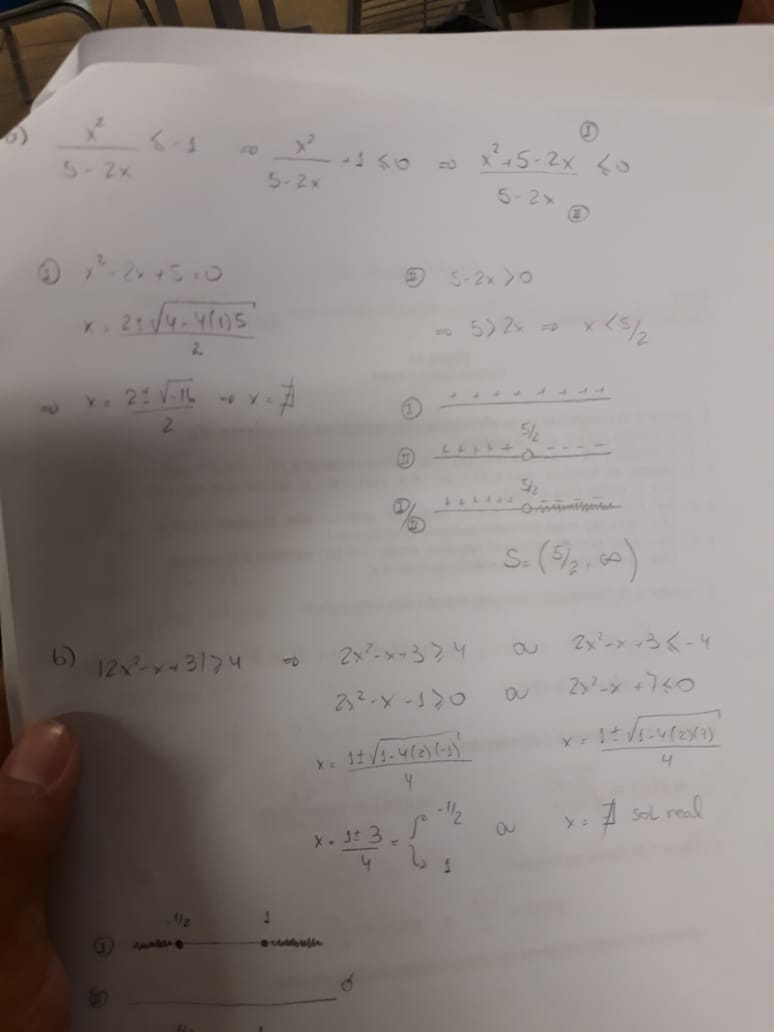 a) x²/(5-2x) ≤ -1 ⇒ x²/(5-2x) +1 ≤ 0 ⇒ (x²+5-2x)/(5-2x) ≤ 0
Ⓘ
Ⓘ
Ⓘ x²-2x+5=0
x = (2±√(4-4(1)5))/2
⇒ x = (2±√-16)/2 → x = ∄
Ⅱ 5-2x>0
⇒ 5>2x ⇒ x<5/2
Ⓘ + + + + + + +
Ⅱ + + + + + 5/2 - - - -
Ⓘ/Ⅱ + + + + + + 5/2 - - - -
S=(5/2, ∞)
b) |2x²-x+3|≥4 ⇒ 2x²-x+3≥4 ou 2x²-x+3≤-4
2x²-x-1≥0 ou 2x²-x+7≤0
x = (1±√(1-4(2)(-1)))/4 x = (1±√(1-4(2)(7)))/4
x = (1±3)/4 = -1/2 1 ou x = ∄ sol real
Ⓘ -1/2 1
Ⅱ ∅